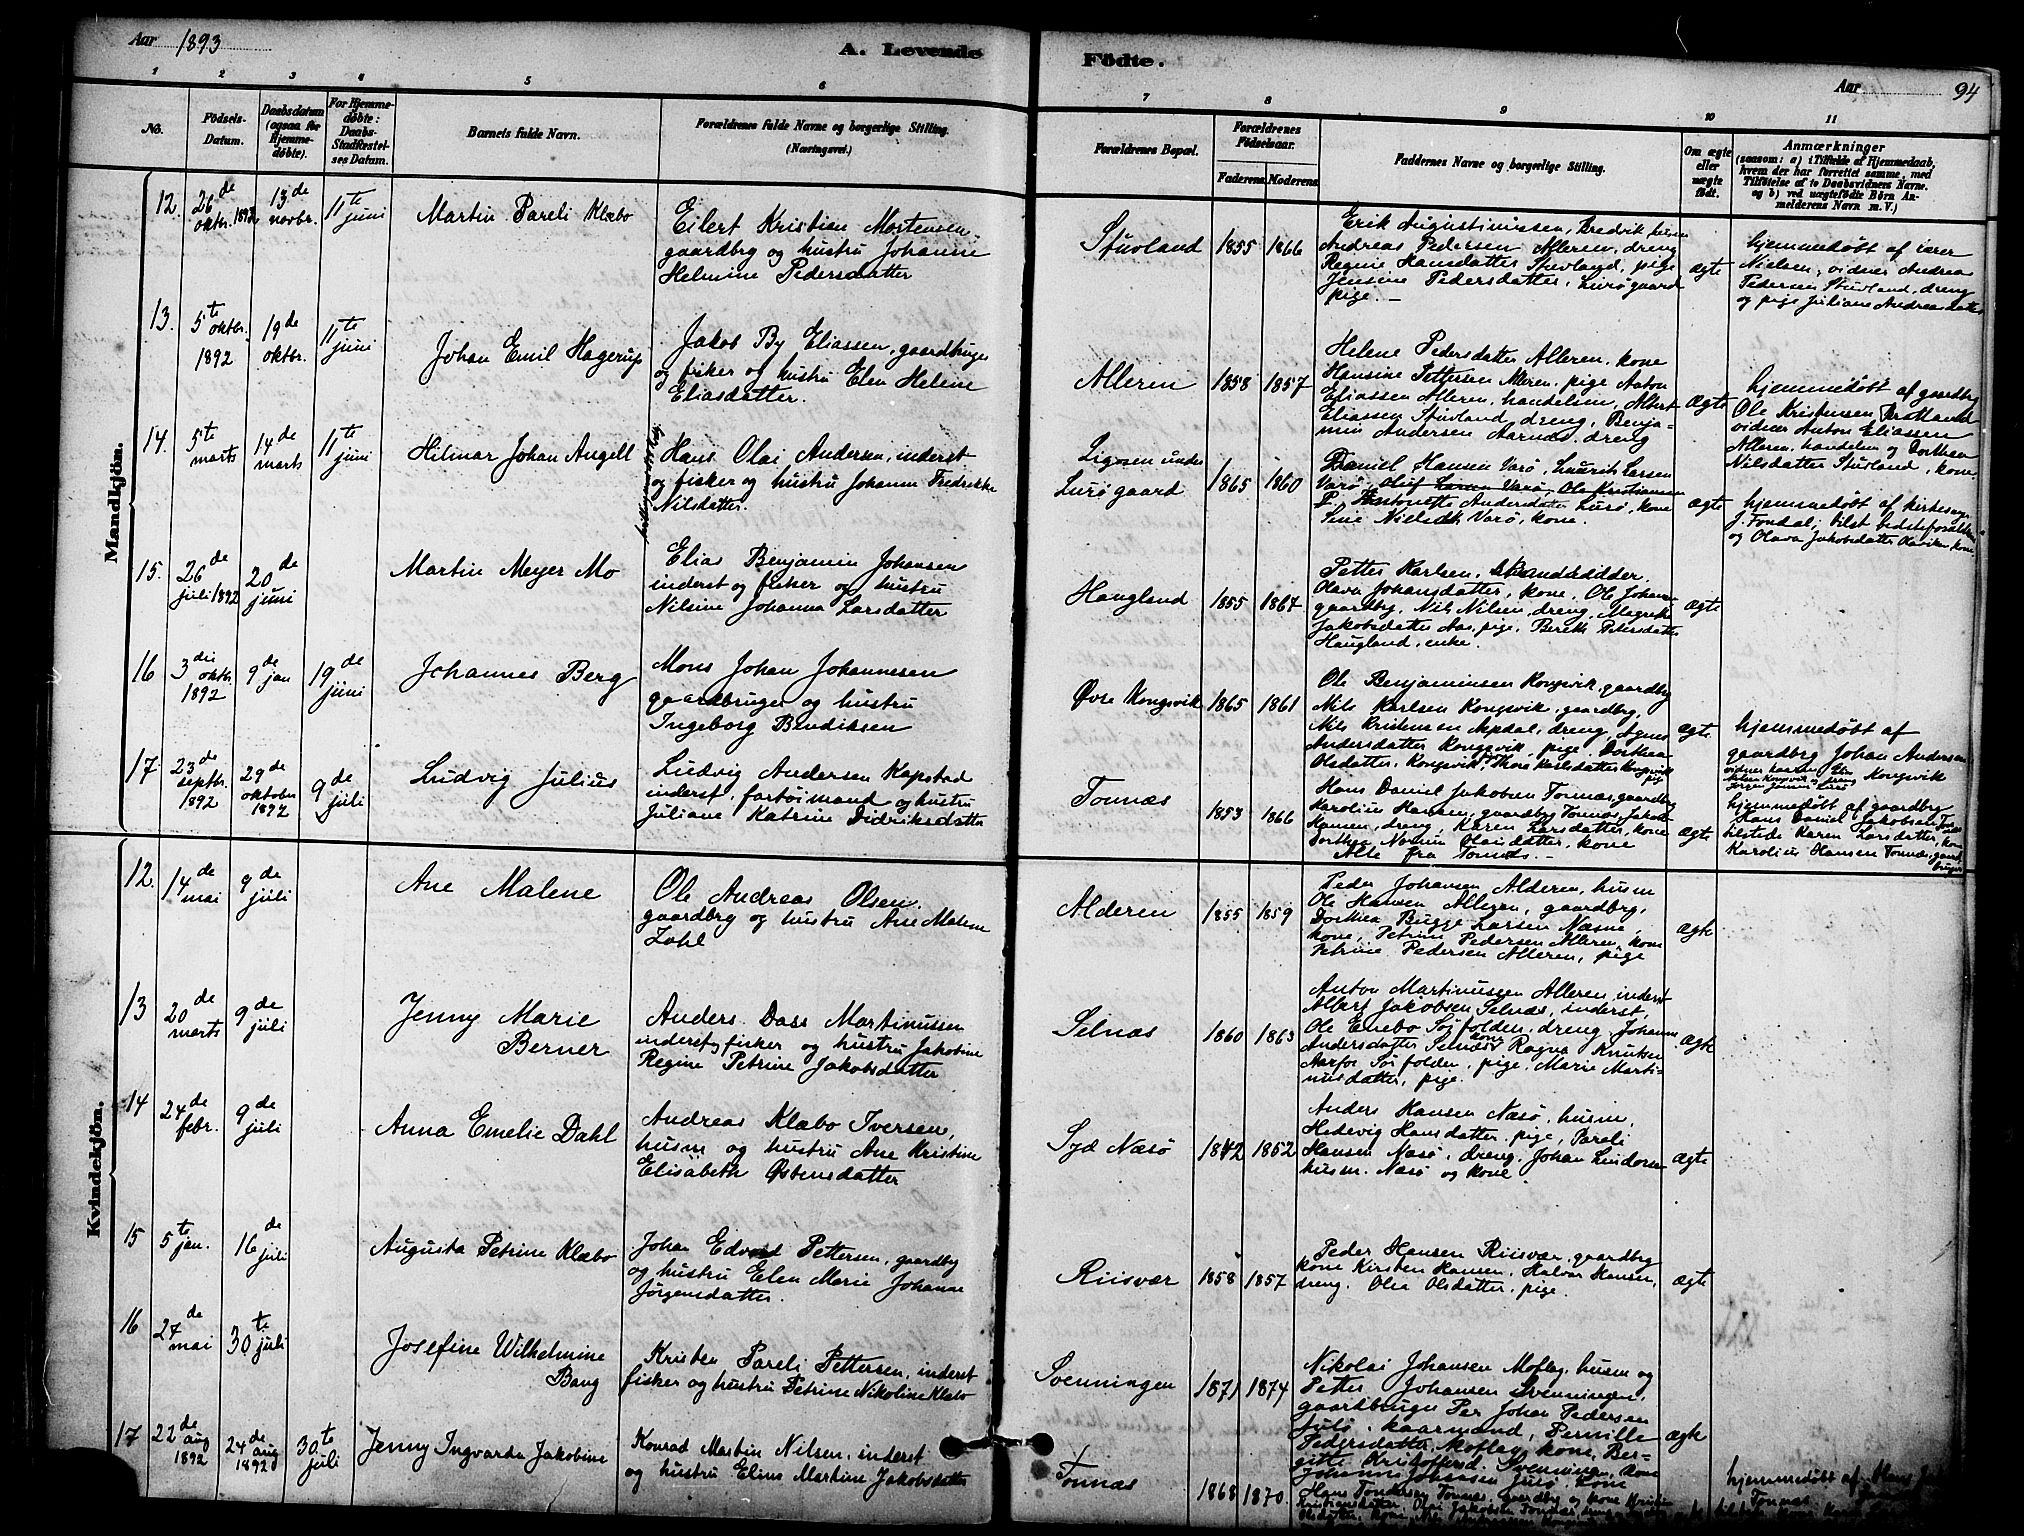 Aar 1893
A. Levende
Födte.
Aar 94
1 2 3 4 5 6 7 8 9 10 11
No.
Födsels-
Datum.
Daabsdatum
(ogsaa for
Hjemme-
døbte).
For Hjemme-
døbte:
Daabs-
Stadfæstel-
ses Datum.
Barnets fulde Navn.
Forældrenes fulde Navne og borgerlige Stilling.
(Næringsvei.)
Forældrenes Bopæl.
Forældrenes
Födselsaar.
Faderens. Moderens.
Faddernes Navne og borgerlige Stilling.
Om ægte
eller
uægte
født.
Anmærkninger
(saasom: a) i Tilfælde af Hjemmedaab,
hvem der har forrettet samme, med
Tilföielse af to Daabsvidners Navne.
og b) ved uægtefödte Börn An-
melderens Navn m. V.)
Mandkjön.
12. 26de oktbr. 1892 13de novbr. 11te juni
Martin Pareli Klæbo
Eilert Kristian Mortensen
gaardbrg og hustru Johanne
Helmine Pedersdatter
Stuvland 1855 1866
Erik Augustinussen, Bredvik, husm
Andreas Pedersen Alleren, dreng
Regine Hansdatter Stuvland, pige
Jensine Pedersdatter, Lurøgaard
pige.
ægte
hjemmedøbt af
Nielsen, vidner Andrea
Pedersen Stuvland, dreng
og pige Juliane Andreasdatter
13. 5te oktbr. 1892 19de oktbr. 11te juni
Johan Emil Hagerup
Jakob By Eliassen, gaardbruger
og fisker og hustru Elen Helene
Eliasdatter.
Alleren 1858 1857
Helene Pedersdatter Alleren, kone
Hansine Pettersen Alleren, pige Anton
Eliassen Alleren, handelsm, Albert
Eliassen Stuvland, dreng, Benja-
min Andersen Aarnes, dreng
ægte
hjemmedøbt af gaardbrg
Ole Kristensen Bratland
vidner Anton Eliassen
Alleren, handelsm og Dorthea
Nilsdatter Stuvland, kone.
14. 5te marts 14de marts 11te juni
Hilmar Johan Angell
Hans Olai Andersen, inderst
og fisker og hustru Johanna Fredrikke
Nilsdatter.
Ligosen under
Lurøgaard 1865 1860
Daniel Hansen Varø, Laurits Larsen
Varø, Oluf Larsen Varø, Ole Kristiansen
Antonette Andersdatter Lurø, kone
Sine Nielsdtr Varø, kone.
ægte
hjemmedøbt af kirkesang.
J. Fondal, tilst bedsteforældrene
og Olava Jakobsdatter Olaviken kone
15. 26de juli 1892 20de juni
Martin Meyer Mo
Elias Benjamin Johansen
inderst og fisker og hustru
Nilsine Johanna Larsdatter
Haugland 1855 1867
Petter Karlsen, Strandsidder.
Olava Johansdatter, kone, Ole Johan
gaardbg, Nils Nilsen, dreng, Magrete
Jakobsdatter Aas, pige, Bereth Petersdatter
Haugland, enke.
ægte
16 3die oktbr. 1892 9de jan 19de juni
Johannes Berg
Mons Johan Johannesen
gaardbruger og hustru
Ingeborg Bendiksen
Øvre Kongsvik 1865 1861
Ole Benjaminsen Kongsvik, gaardbg
Nils Karlsen Kongsvik, gaardbg,
Nils Kristensen Apdal, dreng, Agnes
Andersdatter Kongsvik, pige, Dorthea
Olsdatter, Kongsvik, Thora Karlsdatter Kongsvik
pig
ægte
hjemmedøbt af
gaardbrg Johan Andersen
Kongsvik
17 23de septbr. 1892 29de oktober 1892 9de juli
Ludvig Julius
Ludvig Andersen Kopstad
inderst, fartøimand og hustru
Juliane Katrine Didriksdatter
Tonnæs 1853 1866
Hans Daniel Jakobsen Tonnæs, gaardbg
Karolius Hansen, gaardbg Tonnæs, Jakob
Hansen, dreng, Karen Larsdatter, kone
Dorthea Norum Olausdatter, kone
Alle fra Tonnæs.
ægte
hjemmedøbt af gaardbrg
Hans Daniel Jakobsen Tonnæs
tilstede Karen Larsdatter, kone
Karolius Hansen Tonnæs, gaard-
bruger
Kvindekjön.
12. 14de mai 9de juli
Ane Malene
Ole Andreas Olsen
gaardbrg og hustru Ane Malene
Zahl
Alderen 1855 1859
Peder Johansen Alderen, husm
Ole Hansen Alleren, gaardbrg,
Dorthea Bugge Larsen Næsne,
kone, Petrine Pedersen Alleren, kone
Petrine Pedersen Alleren, pige
ægte
13 20de marts 9de juli
Jenny Marie
Berner
Anders Dass Martinussen
inderst, fisker og hustru Jakobine
Regine Petrine Jakobsdatter
Selnæs 1860 1863
Anton Martinussen Alleren, inderst
Albert Jakobsen Selnæs, inderst,
Ole Enebo Sørfolden, dreng, Johanne
Andersdatter Selnæs kone Ragna Knutsen
Aarfor Sørfolden, pige, Marie Marti-
nusdatter, pige.
ægte
14 24de febr. 9de juli
Anna Emelie Dahl
Andreas Klæbo Iversen,
husm og hustru Ane Kristine
Elisabeth Østensdatter
Syd Næsø 1842 1852
Anders Hansen Næsø, husm,
Hedevig Hansdatter, pige, Pareli
Hansen Næsø, dreng, Johan Lindorm
husm. Næsø og kone.
ægte
15 5te jan. 16de juli
Augusta Petrine Klæbo
Johan Edvard Pettersen, gaardbg
og hustru Elen Marie Johanne
Jørgensdatter.
Riisvær 1858 1857
Peder Hansen Riisvær, gaardbrg
kone Kirsten Hansen, Halvor Hansen,
dreng. Olea Olsdatter, pige.
ægte
16 27de mai 30te juli
Josefine Wilhelmine
Bang
Kristen Pareli Pettersen, inderst
fisker og hustru Petrine Nikoline Klæbo
Svenningen 1871 1874
Nikolai Johansen Moflag, husm og
Petter Johansen Svenningen,
gaardbruger Per Johan Pedersen
kaarmand, Pernille
Pedersdatter, Moflag, kone, Ber-
gitte Kristoffersd. Svenningen, kone
Johanna Johansen Lurø, kone
ægte
17 22de aug 1892 24de aug 1892 30te juli
Jenny Ingvarda Jakobine
Konrad Martin Nilsen, inderst
og hustru Elina Martine Jakobsdatter
Tonnæs 1868 1870
Hans Tondersen Tonnæs, gaardbg og kone
hjemmedøbt af Hans
Tonnæs